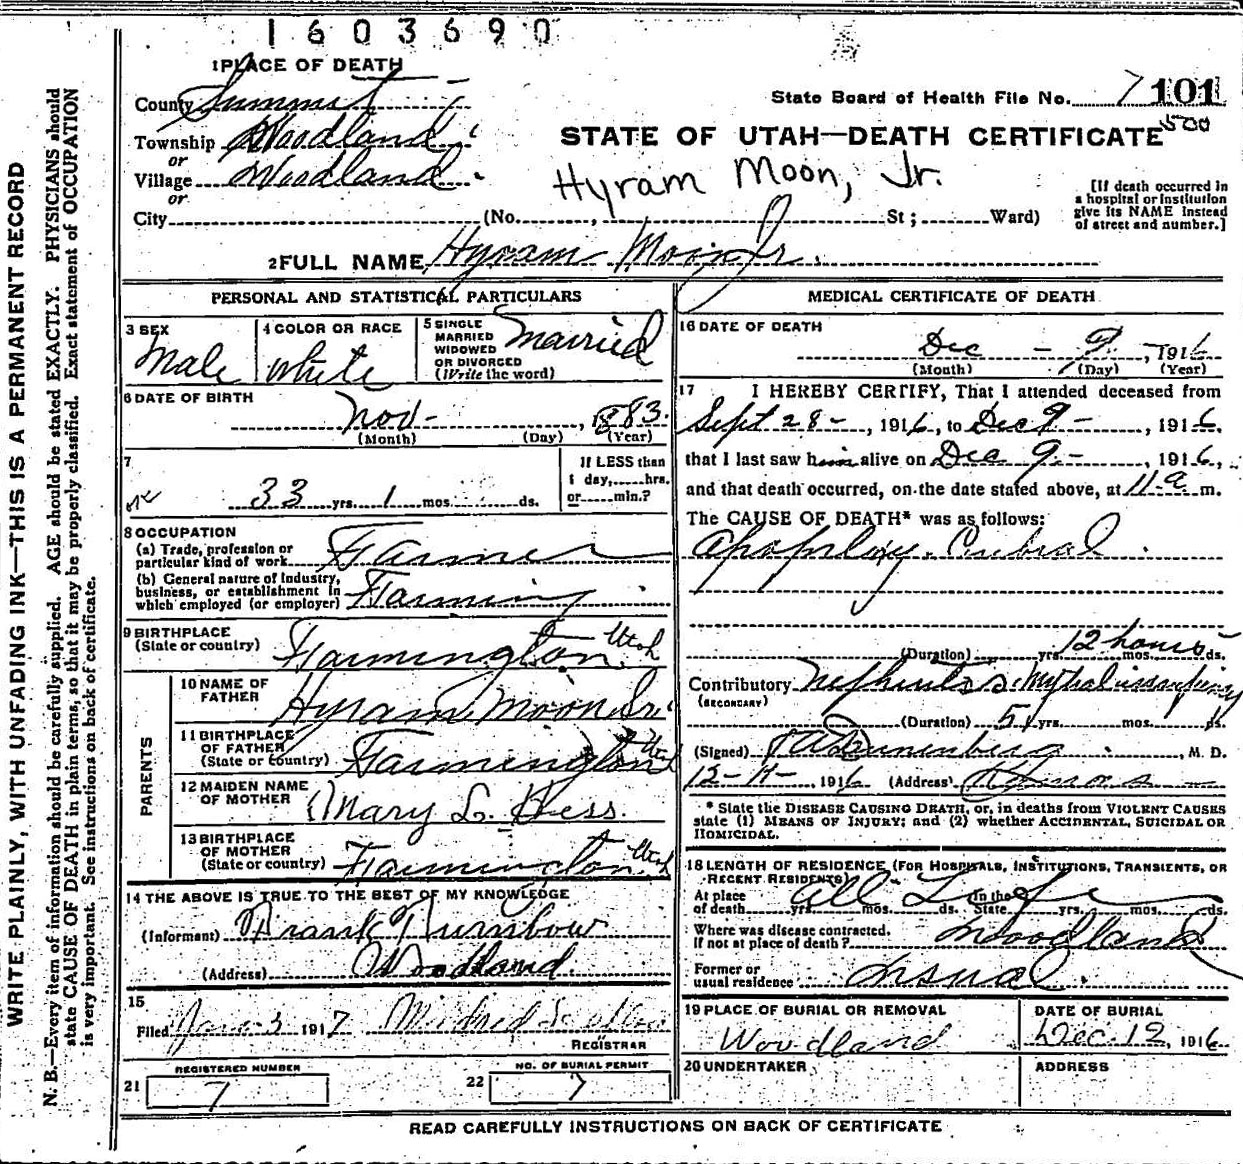 1603690
1 PLACE OF DEATH
County Summit
State Board of Health File No. 7 101
500
Township Woodland
or
STATE OF UTAH—DEATH CERTIFICATE
Village Woodland
or
Hyram Moon, Jr.
[If death occurred in
a hospital or institution
give its NAME instead
of street and number.]
City (No. , St ; Ward)
2 FULL NAME Hyram Moon Jr.
PERSONAL AND STATISTICAL PARTICULARS
3 SEX
Male
4 COLOR OR RACE
white
5 SINGLE
MARRIED
WIDOWED
OR DIVORCED
(Write the word)
Married
6 DATE OF BIRTH
Nov- , 1883.
(Month) (Day) (Year)
7
33 yrs. 1 mos. ds.
If LESS than
1 day, hrs.
or min.?
8 OCCUPATION
(a) Trade, profession or
particular kind of work Farmer
(b) General nature of Industry,
business, or establishment in
which employed (or employer) Farming
9 BIRTHPLACE
(State or country) Farmington Utah
PARENTS
10 NAME OF
FATHER Hyram Moon Sr.
11 BIRTHPLACE
OF FATHER
(State or country) Farmington Utah
12 MAIDEN NAME
OF MOTHER Mary L. Hess.
13 BIRTHPLACE
OF MOTHER
(State or country) Farmington Utah
14 THE ABOVE IS TRUE TO THE BEST OF MY KNOWLEDGE
(Informant) Frank Turnbow
(Address) Woodland.
15
Filed Jan. 3 1917 Mildred
REGISTRAR
REGISTERED NUMBER
21 7
NO. OF BURIAL PERMIT
22 7
MEDICAL CERTIFICATE OF DEATH
16 DATE OF DEATH
Dec - 9 , 1916
(Month) (Day) (Year)
17 I HEREBY CERTIFY, That I attended deceased from
Sept 28 - , 1916, to Dec 9 - , 1916,
that I last saw him alive on Dec 9 - , 1916,
and that death occurred, on the date stated above, at 11 a m.
The CAUSE OF DEATH* was as follows:
Apoplexy. Cerebral.
(Duration) yrs. 12 hours mos. ds.
Contributory Nephritis & Mytral
(SECONDARY)
(Duration) 5 yrs. mos. ds.
(Signed) M. D.
12-11- 1916 (Address) Kamas
* State the DISEASE CAUSING DEATH, or, in deaths from VIOLENT CAUSES
state (1) MEANS OF INJURY; and (2) whether ACCIDENTAL, SUICIDAL OR
HOMICIDAL.
18 LENGTH OF RESIDENCE (FOR HOSPITALS, INSTITUTIONS, TRANSIENTS, OR
RECENT RESIDENTS)
At place
of death yrs. mos. ds. In the State yrs. mos. ds.
All Life
Where was disease contracted.
If not at place of death? Woodland
Former or
usual residence
19 PLACE OF BURIAL OR REMOVAL
Woodland
DATE OF BURIAL
Dec. 12, 1916
20 UNDERTAKER
ADDRESS
READ CAREFULLY INSTRUCTIONS ON BACK OF CERTIFICATE
WRITE PLAINLY, WITH UNFADING INK—THIS IS A PERMANENT RECORD
N. B.—Every item of information should be carefully supplied. AGE should be stated EXACTLY. PHYSICIANS should
state CAUSE OF DEATH in plain terms, so that it may be properly classified. Exact statement of OCCUPATION
is very important. See instructions on back of certificate.